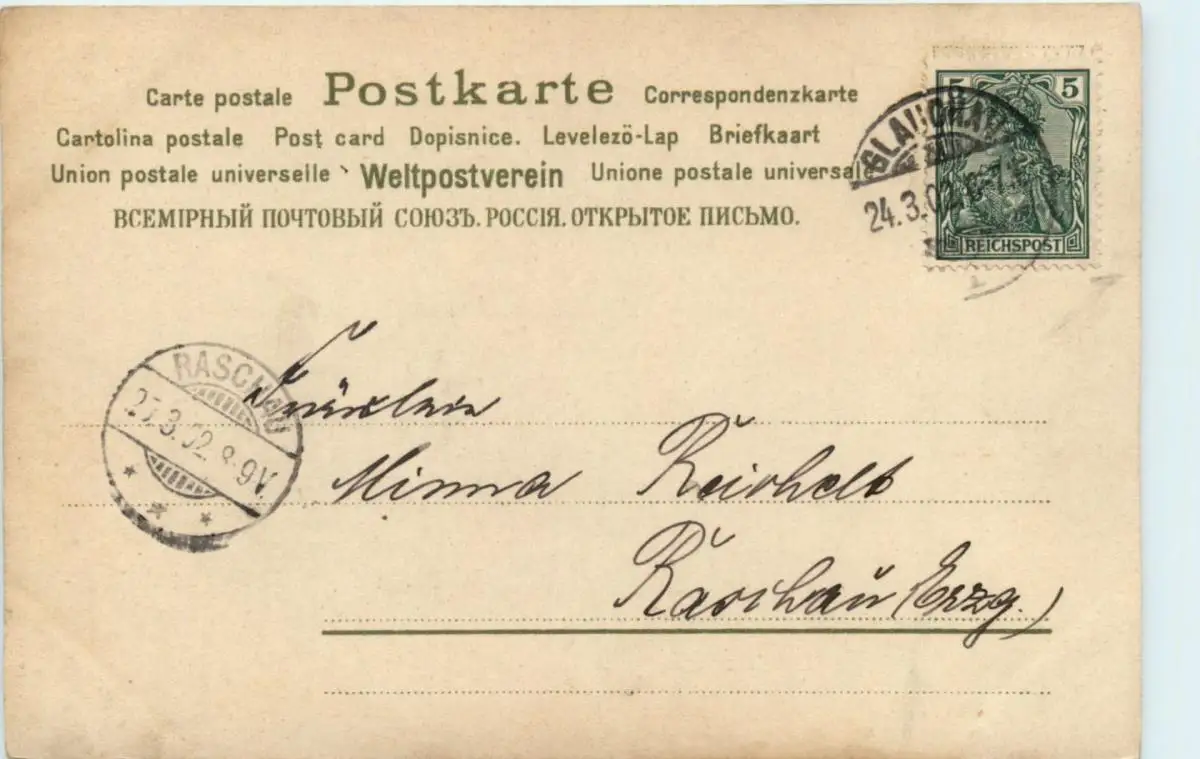 Carte postale Postkarte Correspondenzkarte
Cartolina postale Post card Dopisnice. Levelezö-Lap Briefkaart
Union postale universelle Weltpostverein Unione postale universale
ВСЕМІРНЫЙ ПОЧТОВЫЙ СОЮЗЪ. РОССІЯ. ОТКРЫТОЕ ПИСЬМО.
5 5
REICHSPOST
GLAUCHAU
24.3.02
RASCHAU
25.3.02. 8-9V.
Fräulein
Minna Reichelt
Raschau (Erzg.)